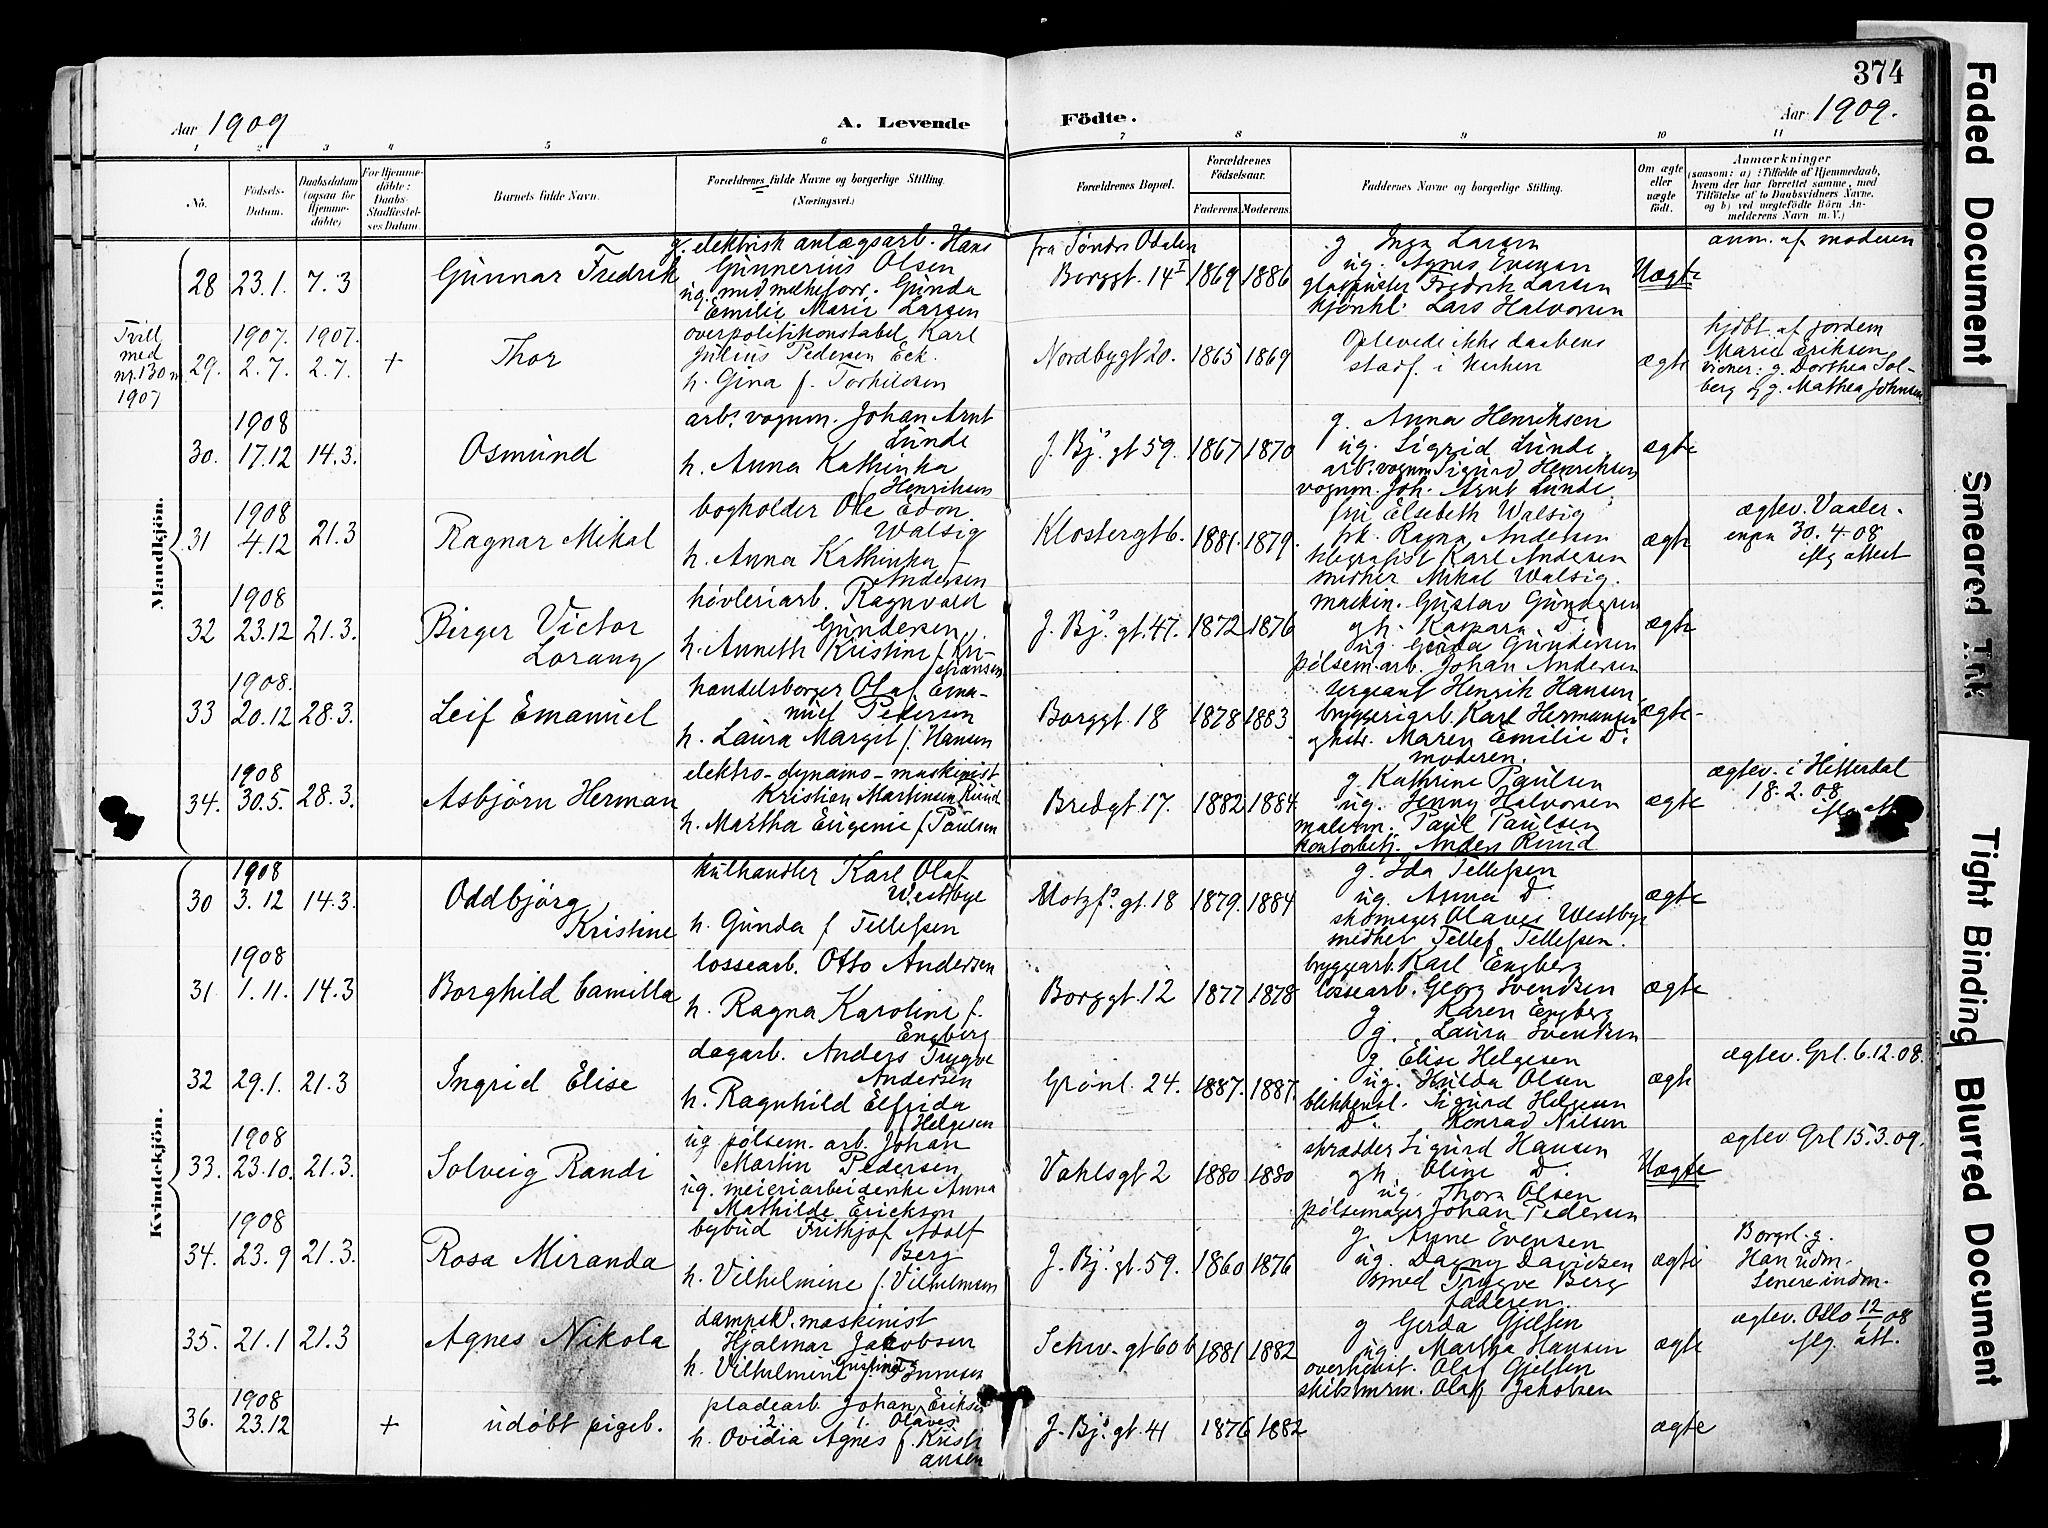 374
Aar 1909
A. Levende
Födte.
Aar 1909.
1 2 3 4 5 6 7 8 9 10 11
No.
Födsels-
Datum.
Daabsdatum
(ogsaa for
Hjemme-
döbte)
For Hjemme-
döbte:
Daabs-
Stadfæstel-
ses Datum.
Barnets fulde Navn.
Forældrenes fulde Navne og borgerlige Stilling.
(Næringsvei.)
Forældrenes Bopæl.
Forældrenes
Födselsaar.
Faderens. Moderens.
Faddernes Navne og borgerlige Stilling.
Om ægte
eller
uægte
födt.
Anmærkninger
(saasom: a) i Tilfælde af Hjemmedaab,
hvem der har forrettet samme, med
Tilföielse af to Daabsvidners Navne.
og b) ved uægtefödte Börn An-
melderens Navn m. V.)
Mandkjön.
28 23.1. 7.3
Gunnar Fredrik
g. elektrisk anlægsarb. Hans
Gunnerius Olsen
Emilie Marie Larsen
fra Søndre Odalen
Borggt. 14 I
1869 1886
g Inga Larsen
ug. Agnes Evensen
glaspuster Fredrik Larsen
Lars Halvorsen
Uægte
anm. af moderen
Tvill
med
nr. 130
1907
29. 1907. 2.7. 1907. 2.7. +
Thor
overpolitikonstabel Karl
Julius Pedersen Eck.
h. Gina f. Torkildsen
Nordbygt 20.
1865 1869
Oplevede ikke daabens
stadf. i kirken
ægte
hjdbt. af jordem
Marie Eriksen
vidner: g. Dorthea Sol-
berg og g. Mathea Johnsen
30. 1908 17.12 14.3.
Osmund
arb. vognm. Johan Arnt
Lunde
h. Anna Kathinka
f. Henriksen
J. Bj.s gt 59.
1867 1870
g. Anna Henriksen
ug. Sigrid Lunde
arb. vognm Sigurd Henriksen
vognm. Joh. Arnt Lunde
ægte
31 1908 4.12 21.3
Ragnar Mikal
bogholder Ole Edon
Walsig
h. Anna Kathinka f.
Andersen
Klostergt 6.
1881. 1879.
fru Elsebeth Walsig
frk. Ragna Andersen
telegrafist Karl Andersen
Mikal Walsig.
ægte
ægtev. Vaaler-
engen 30.4.08
iflg attest
32 1908 23.12 21.3.
Birger Victor
Lorang
høvleriarb. Ragnvald
Gundersen
h. Anneth Kristine f. Kri-
stiansen
J. Bj.s gt. 47.
1872 1876
maskin. Gustav Gundersen
gh. Kaspara Do
ug. Gerda Gundersen
pølsem. arb. Johan Andersen
ægte
33 1908. 20.12 28.3.
Leif Emanuel
handelsborger Olaf Ema-
nuel Pedersen
h. Laura Margit f. Hansen
Borggt. 18
1878 1883
sergeant Henrik Hansen
bryggeriarb. Karl Hermansen
Maren Emilie Do
moderen.
ægte-
34. 1908 30.5. 28.3.
Asbjørn Herman
elektro-dynamo-maskinist
Kristian Martinsen Ruud
h. Martha Eugenie f. Paulsen
Bredgt. 17.
1882 1884.
g. Kathrine Paulsen
ug. Jenny Halvorsen
malerm. Paul Paulsen
kontorbetj. Anders Ruud
ægte
ægtev. i Hitterdal
18.2.08
iflg att
Kvindekjön.
30 1908 3.12 14.3.
Oddbjørg
Kristine
kulhandler Karl Olaf
Westbye
h. Gunda f Tellefsen
Motzf.s gt. 18
1879. 1884
g. Ida Tellefsen
ug. Anna Do
skomager Olaves Westbye
Tellef Tellefsen.
ægte
31 1908 1.11. 14.3
Borghild Camilla
lossearb. Otto Andersen
h. Ragna Karoline f.
Engberg
Borggt. 12
1877 1878
bryggearb. Karl Engberg
lossearb. Georg Svendsen
g Karen Engberg
g. Laura Svendsen
ægte
32 29.1. 21.3
Ingrid Elise
dagarb. Anders Trygve
Andersen
h. Ragnhild Elfrida
f. Helgesen
Grønl. 24.
1887. 1887.
g Elise Helgesen
ug. Hulda Olsen
blikkensl. Sigurd Helgesen
Do Konrad Nilsen
ægte
ægtev. Grl. 6.12.08.
33. 1908 23.10. 21.3.
Solveig Randi
ug pølsem. arb. Johan
Martin Pedersen
ug. meieriarbeiderske Anna
Mathilde Erickson
Vahlsgt 2
1880 1880
skrædder Sigurd Hansen
gh. Oline Do
ug. Thora Olsen
pølsemager Johan Pedersen
Uægte
ægtev. Grl 15.3.09.
34. 1908 23.9 21.3.
Rosa Miranda
bybud Frithjof Adolf
Berg
h. Vilhelmine f. Vilhelmsen
J. Bj.s gt. 59.
1860 1876
g. Anne Evensen
ug. Dagny Davidsen
smed Trygve Berg
faderen.
ægte
Borgrl. g.
Han udm.
Senere indm.
35. 21.1 21.3
Agnes Nikola
dampsk. maskinist
Hjalmar Jacobsen
h. Vilhelmine Gustine f.
Schw. gt 60 b
1881 1882
g Gerda Gjelsen
ug. Martha Hansen
Olaf Gjelsen
Olaf Jakobsen
ægte
ægtev. Oslo 12/08
iflg. att.
36. 1908 23.12 +
udøbt pigeb.
pladearb. Johan Eriksen
2. 1. Olaves
h. Ovidia Agnes f. Kristi
ansen
J. Bj.s gt. 41
1876 1882
ægte
Faded Document
Smeared Ink
Tight Binding
Blurred Document